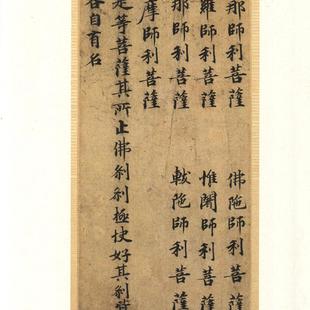 那師利菩薩 佛陁師利菩薩
羅師利菩薩 惟師利菩薩
那師利菩薩 軷陁師利菩薩
摩師利菩薩
是等菩薩其所止佛剎剎極快好其剎
各自有名